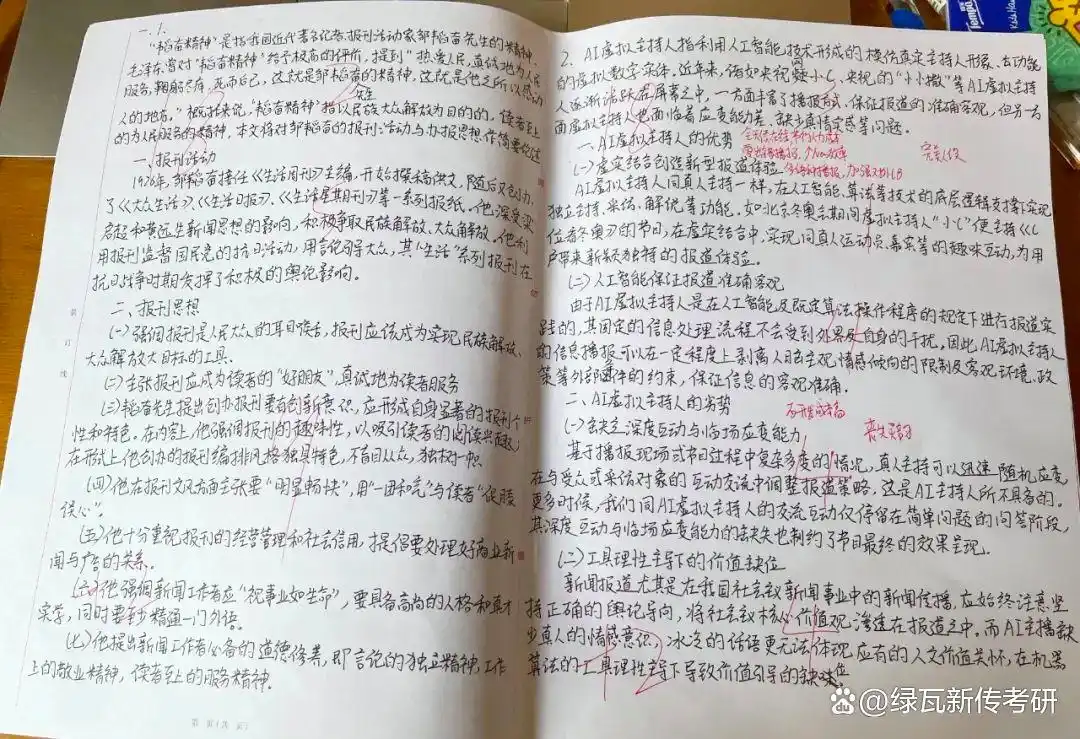 一.1.
"韬奋精神"是指我国近代著名记者、报刊活动家邹韬奋先生的精神.
毛泽东曾对"韬奋精神"给予极高的评价,提到"热爱人民,真诚地为人民
服务,鞠躬尽瘁,死而后已,这就是邹韬奋的精神,这就是他之所以感动
人的地方。"概括来说,"韬奋精神"指以民族大众解放为目的的,读者至上
先生
的为人民服务的精神.本文将对邹韬奋的报刊活动与办报思想作简要论述
一、报刊活动
1926年,邹韬奋接任《生活周刊》主编,开始撰稿供文,随后又创办
了《大众生活》、《生活日报》、《生活星期刊》等一系列报纸。他深受梁
启超和黄远生新闻思想的影响,积极争取民族解放、大众解放,他利
用报刊监督国民党的抗日活动,用言论引导大众,其"生活"系列报刊在
抗日战争时期发挥了积极的舆论影响。
二、报刊思想
(一)强调报刊是人民大众的耳目喉舌,报刊应该成为实现民族解放、
大众解放大目标的工具.
(二)主张报刊应成为读者的"好朋友",真诚地为读者服务
(三)韬奋先生提出创办报刊要有创新意识,应形成自身显著的报刊个
性和特色。在内容上,他强调报刊的趣味性,以吸引读者的阅读兴趣;
在形式上他创办的报刊编排风格独具特色,不盲目从众,独树一帜
(四)他在报刊文风方面主张要"明显畅快",用"一团和气"与读者"促膝
谈心"。
(五)他十分重视报刊的经营管理和社会信用,提倡要处理好商业新
闻与广告的关系.
(六)他强调新闻工作者应"视事业如生命",要具备高尚的人格和真才
实学,同时要至少精通一门外语。
(七)他提出新闻工作者必备的道德修养,即言论的独立精神,工作
上的敬业精神,读者至上的服务精神.
第 页(共 页)
装
订
线
2. AI虚拟主持人指利用人工智能技术形成的模仿真实主持人形象、去功能
的虚拟数字实体.近年来,诸如央视网小C,央视的"小小撒"等AI虚拟主持
人逐渐活跃在屏幕之中,一方面丰富了播报方式、保证报道的准确客观,但另一方
面虚拟主持人也面临着应变能力差、缺少真情实感等问题.
一、AI虚拟主持人的优势
(一)虚实结合创造新型报道体验
AI虚拟主持人同真人主持一样,在人工智能、算法等技术的底层逻辑支撑下实现
独立主持、采访、解说等功能.如北京冬奥会期间虚拟主持人"小C"便主持《C
位看冬奥》的节目,在虚实结合中,实现同真人运动员、嘉宾等的趣味互动,为用
户带来新颖独特的报道体验。
(二)人工智能保证报道准确客观
由于AI虚拟主持人是在人工智能及既定算法操作程序的规定下进行报道实
践的,其固定的信息处理流程不会受到外界及自身的干扰,因此AI虚拟主持人
的信息播报可以在一定程度上剥离人的主观情感倾向的限制及客观环境、政
策等外部条件的约束,保证信息的客观准确.
二、AI虚拟主持人的劣势
(一)缺乏深度互动与临场应变能力
基于播报现场或节目过程中复杂多变的情况,真人主持可以迅速随机应变,
在与受众或采访对象的互动交流中调整报道策略,这是AI主持人所不具备的.
更多时候,我们同AI虚拟主持人的交流互动仅停留在简单问题的问答阶段,
其深度互动与临场应变能力的缺失也制约了节目最终的效果呈现.
(二)工具理性主导下的价值缺位
新闻报道尤其是在我国社会主义新闻事业中的新闻传播,应始终注意坚
持正确的舆论导向,将社会主义核心价值观渗透在报道之中.而AI主播缺
少真人的情感意识,冰冷的话语更无法体现应有的人文价值关怀,在机器
算法的工具理性主导下导致价值引导的缺位
@绿瓦新传考研